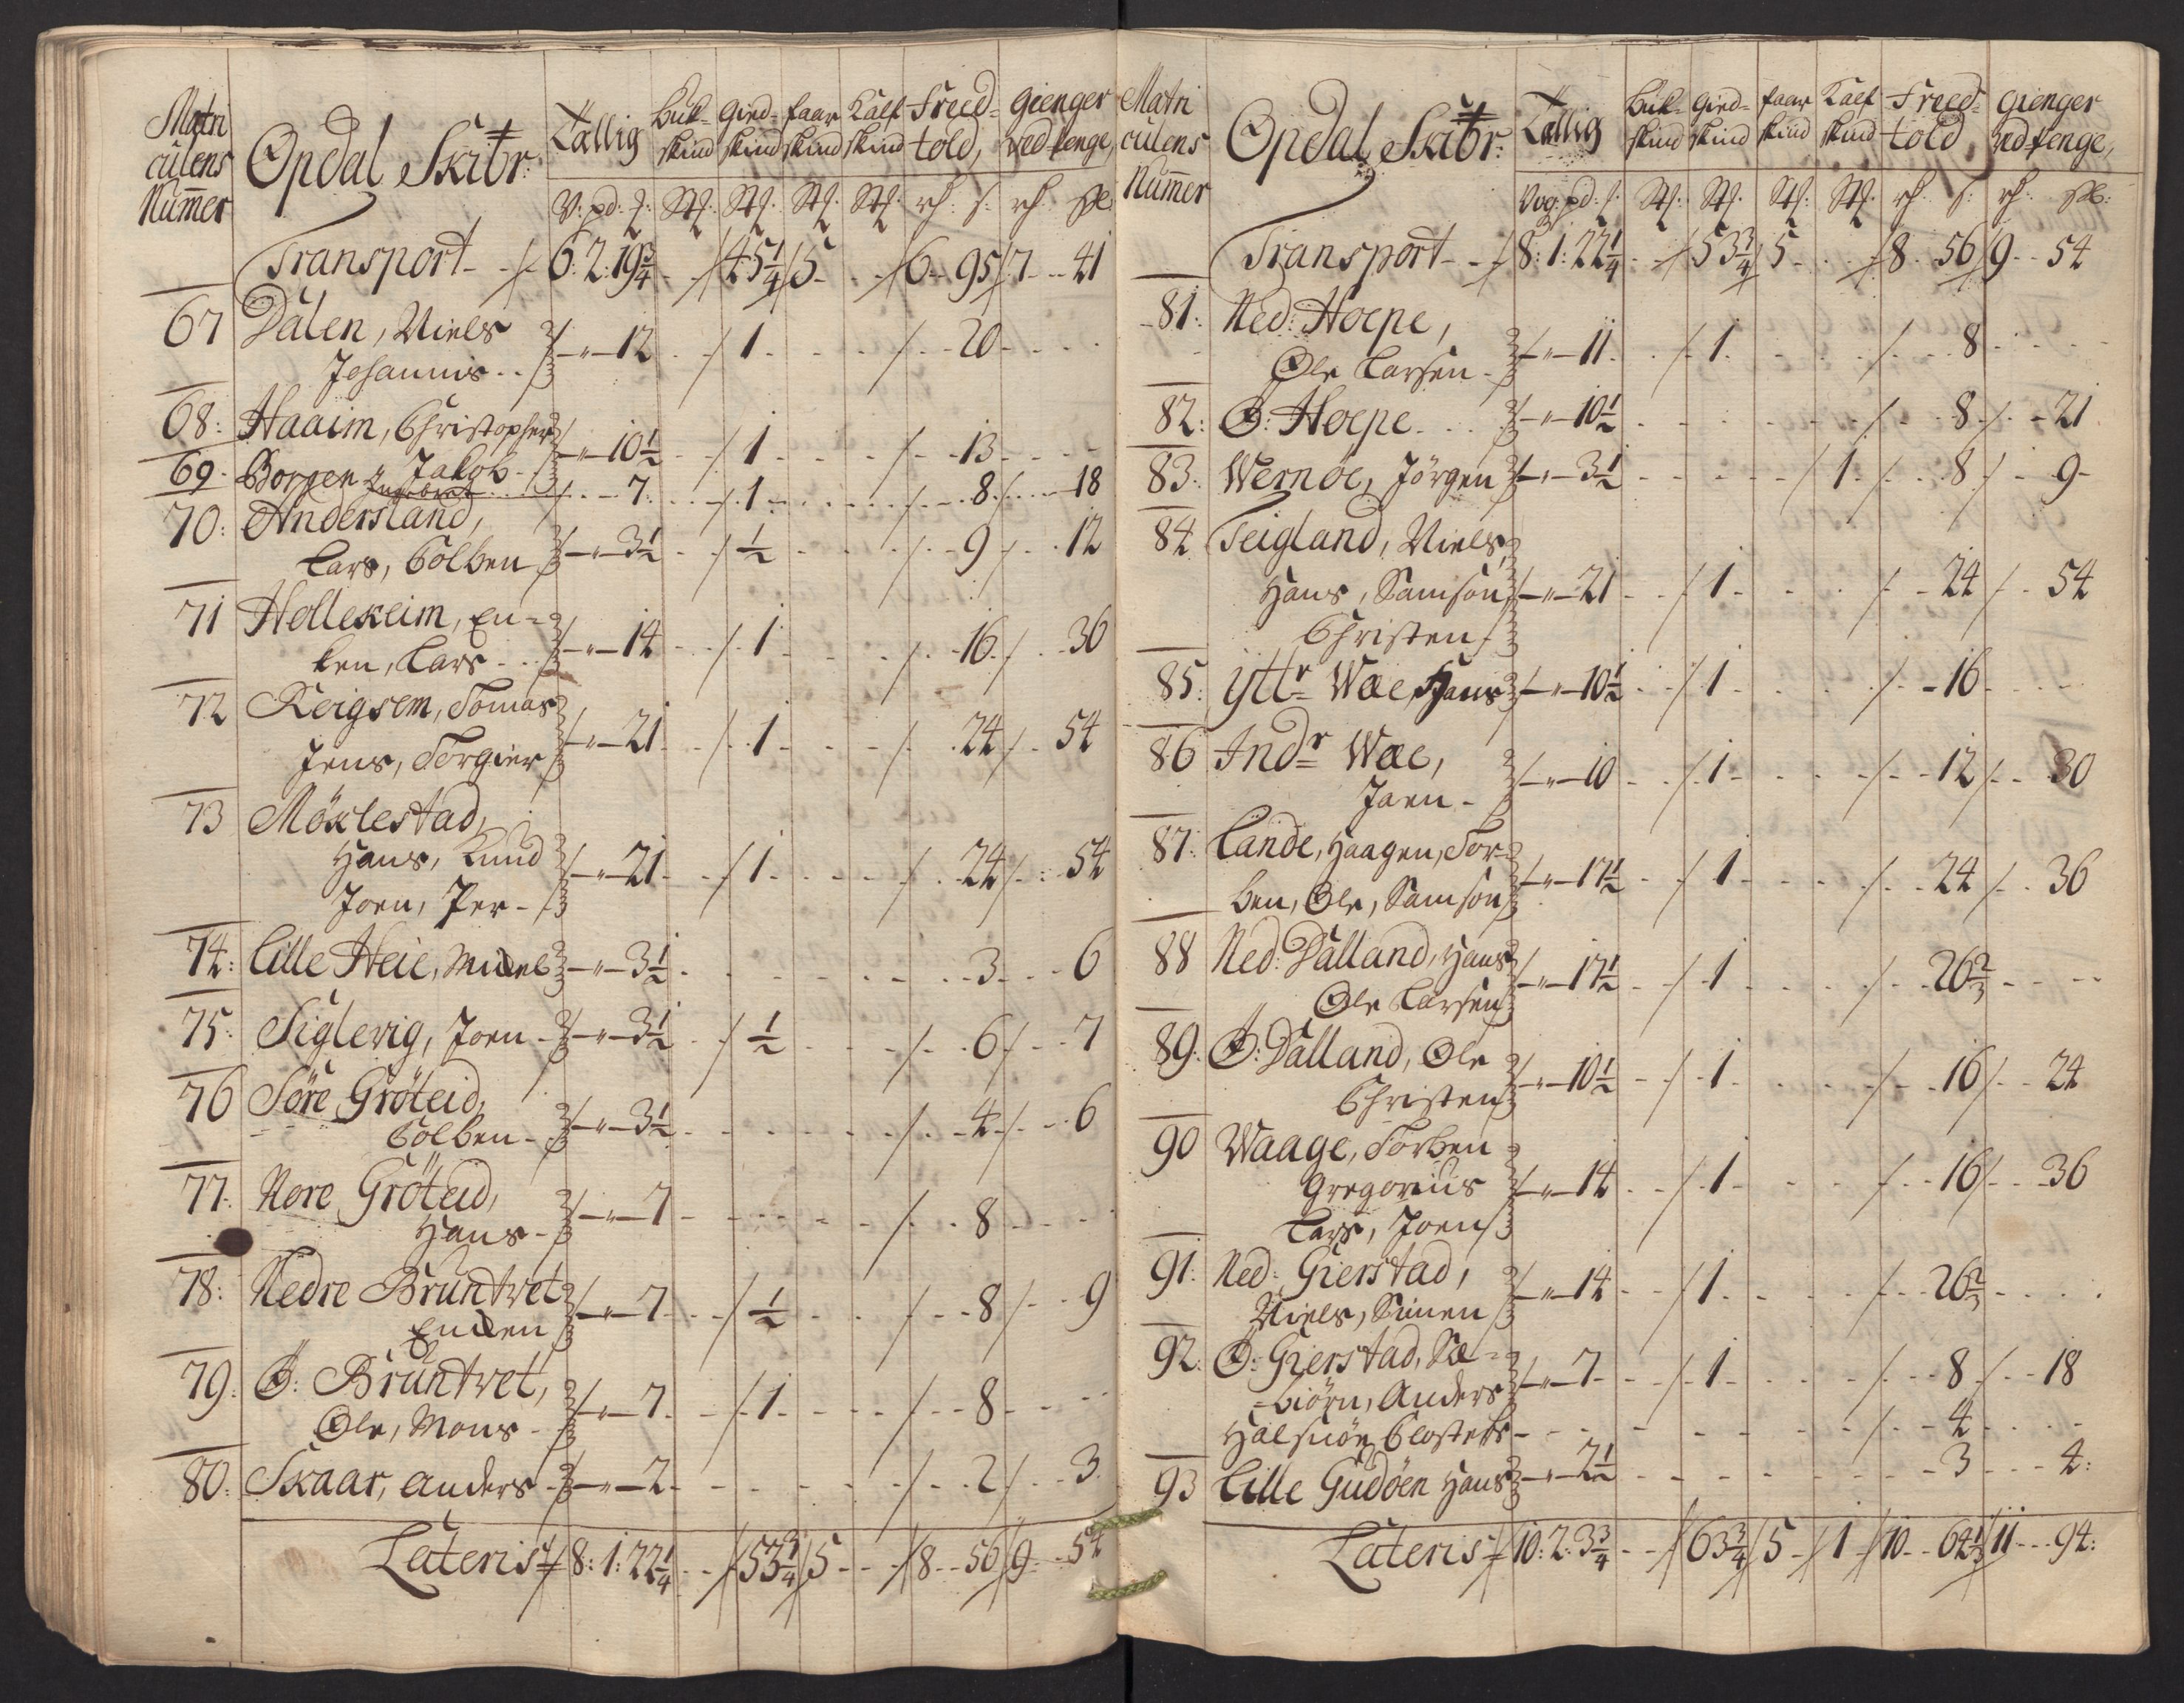 Matri
culens
Nummer
Opdal Skibr:
Tallig
Buk-
skind
Gied-
skind
faar
skind
Kalf
skind
Treed-
told,
gienger
ved penge,
V: pd: St: St: St: St: rd: s: rd: sk:
Transport - 6:2:19 3/4 - 45 1/4 5 - 6 - 95 7 - 41
67 Dalen, Niels
Johannis - 12 - 1 - 20
68: Haaim, Christopher
Jakob - 10 1/2 - 1 - 13
69 - Borgen - 7 - 1 - 8 - 18
70: Andersland,
Lars, Colben - 3 1/2 - 1/2 - 9 - 12
71 Hollekeim, En-
ken, Lars - 14 - 1 - 16 - 36
72 Reigsem, Tomas
Jens, Torgier - 21 - 1 - 24 - 54
73 Möklestad,
Hans, Knud
Joen, Per - 21 - 1 - 24 - 54
74: Lille Heie, Mikel - 3 1/2 - 3 - 6
75: Siglevig, Joen - 3 1/2 - 1/2 - 6 - 7
76 Söre Gröteid,
Colben - 3 1/2 - 4 - 6
77: Nore Gröteid,
Hans - 7 - 8
78: Nedre Bruntvet
Encken - 7 - 1/2 - 8 - 9
79: Ö: Bruntvet,
Ole, Mons - 7 - 1 - 8
80: Skaar, Anders - 2 - 2 - 3
Lateris 8:1:22 1/4 - 53 3/4 5 - 8 - 56 9 - 54
Matri
culens
Nummer
Opdal Skibr:
Tallig
Buk-
skind
Gied-
skind
faar
skind
Kalf
skind
Treed-
told,
gienger
ved penge,
Vog: pd: St: St: St: St: rd: s: rd: sk:
Transport - 8:1:22 1/4 - 53 3/4 5 - 8 - 56 9 - 54
81: Ned: Hoepe,
Ole Larsen - 11 - 1 - 8
82: Ö: Hoepe - 10 1/2 - 8 - 21
83: Wernöe, Jörgen - 3 1/2 - 1 - 8 - 9
84 Teigland, Niels,
Hans, Samson
Christen - 21 - 1 - 24 - 54
85: Yttr Wae, Hans - 10 1/2 - 1 - 16
86 Indr Wae,
Joen - 10 - 1 - 12 - 30
87: Lande, Haagen, Tor-
ben, Ole, Samson - 17 1/2 - 1 - 24 - 36
88 Ned: Dalland, Hans
Ole Larsen - 17 1/2 - 1 - 26 2/3
89: Ö: Dalland, Ole
Christen - 10 1/2 - 1 - 16 - 24
90 Waage, Torben
Gregorius
Lars, Joen - 14 - 1 - 16 - 36
91: Ned: Gierstad,
Niels, Simen - 14 - 1 - 26 2/3
92: Ö: Gierstad, Sæ-
-biörn, Anders - 7 - 1 - 8 - 18
Halsnöe Closters - 4
93 Lille Gudöen Hans - 2 1/2 - 3 - 4:
Lateris 10:2:3 3/4 - 63 3/4 5 - 1 - 10 - 64 1/3 11 - 94: